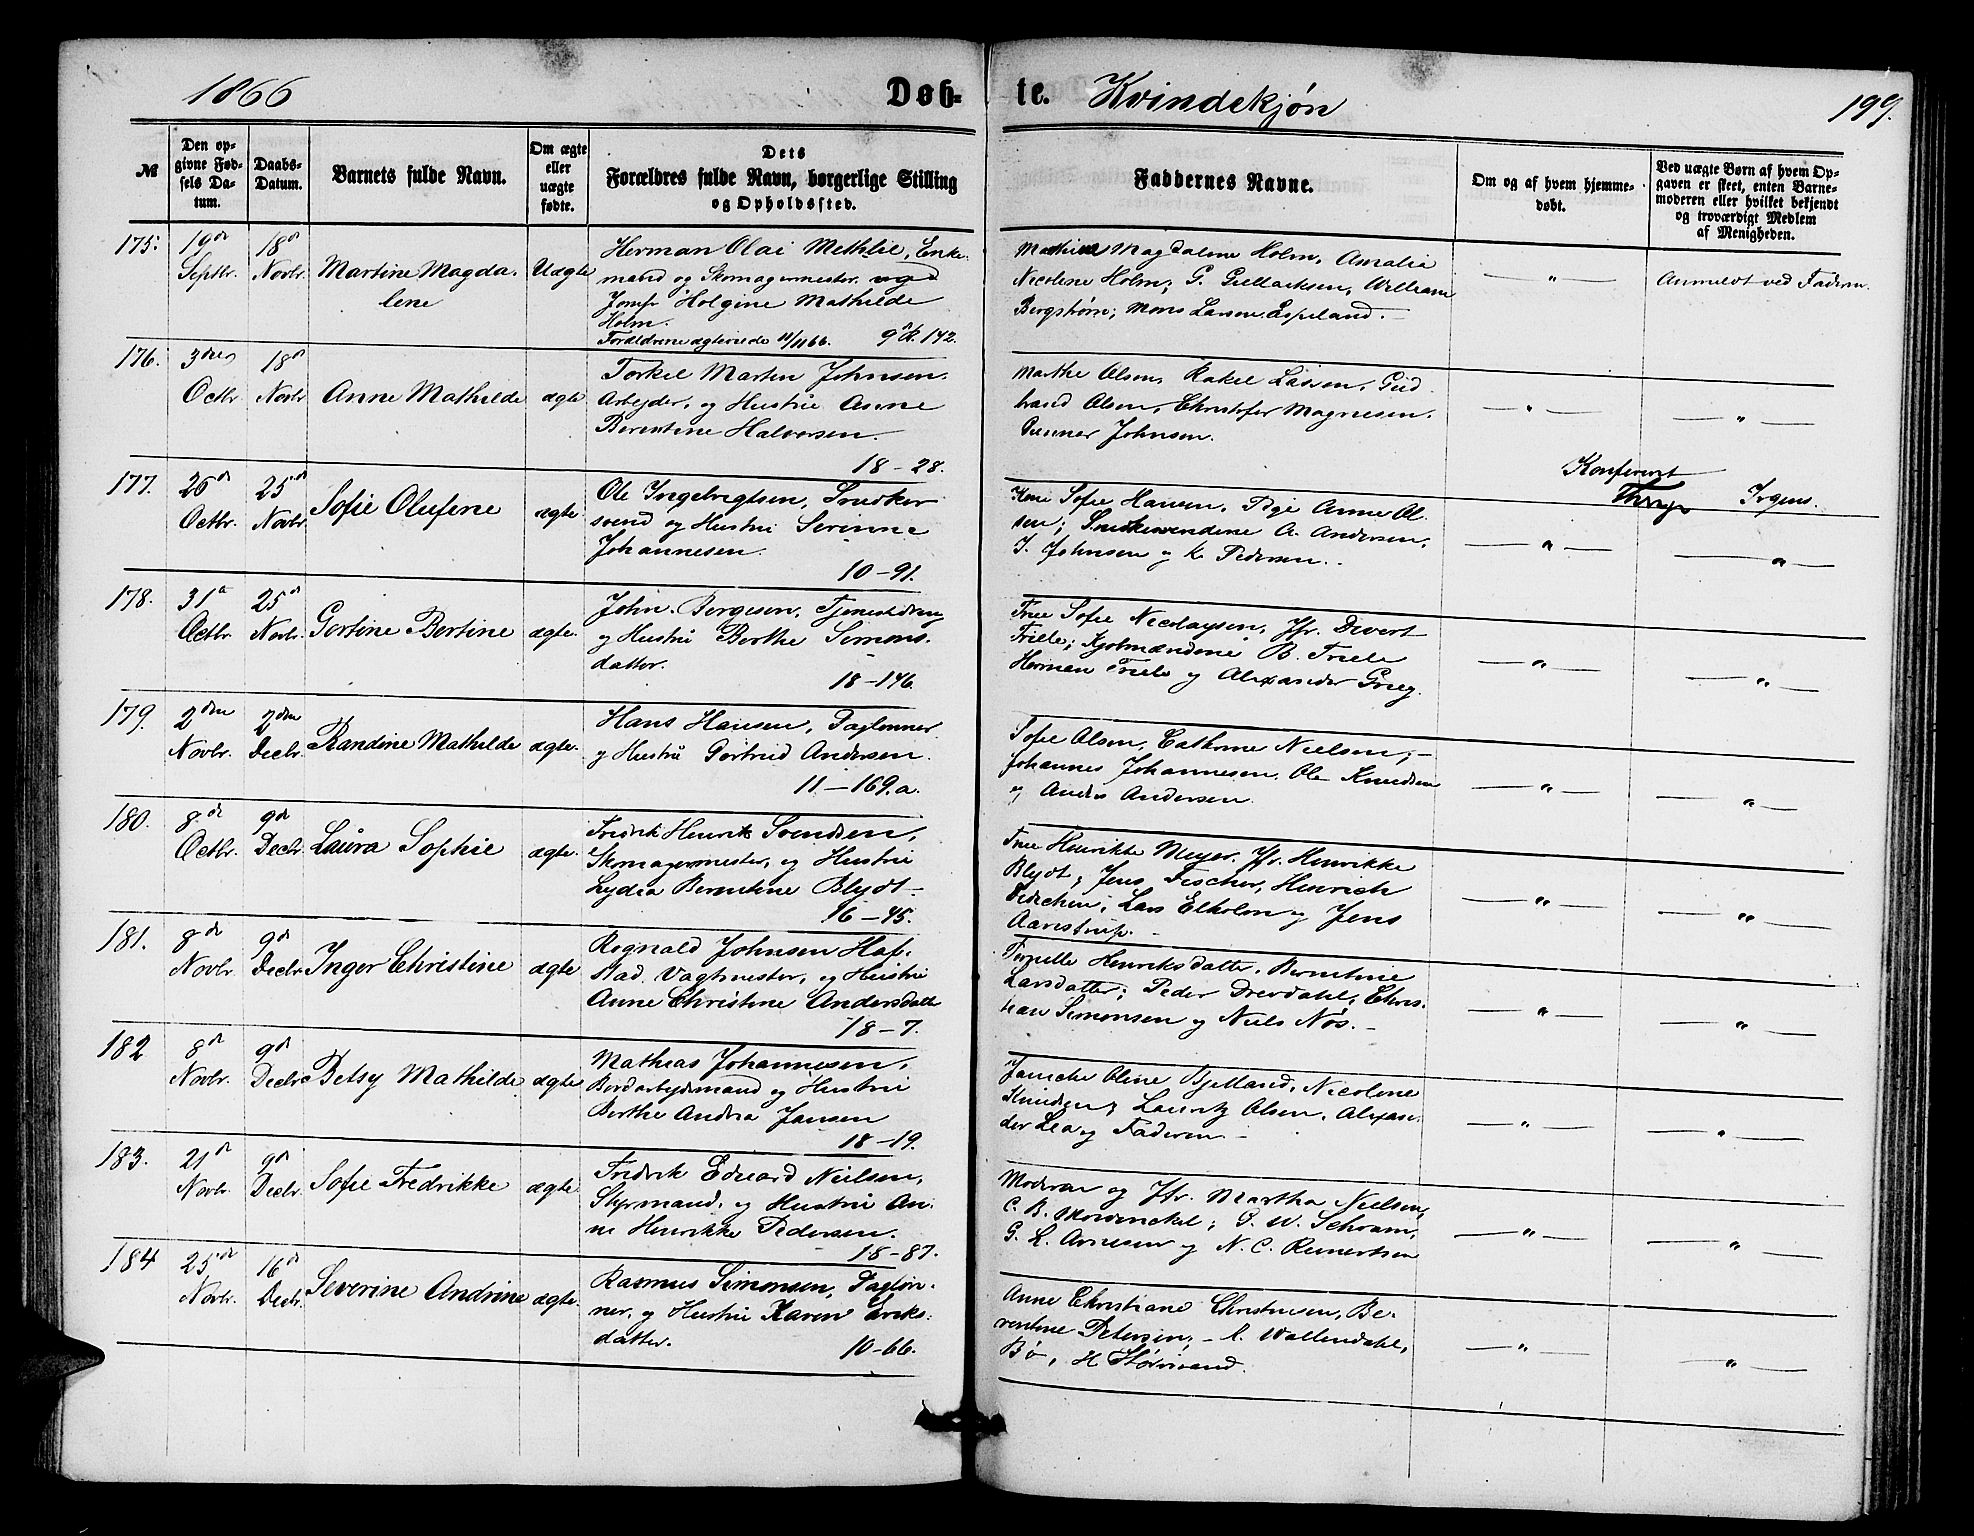 1866 Døb- te. Kvindekjøn 199.
№
Den op-
givne Fød-
sels Da-
tum.
Daabs-
Datum.
Barnets fulde Navn.
Om ægte
eller
uægte
fødte.
Dets
Forældres fulde Navn, borgerlige Stilling
og Opholdssted.
Faddernes Navne.
Om og af hvem hjemme-
døbt.
Ved uægte Børn af hvem Op-
gaven er skeet, enten Barne-
moderen eller hvilket bekjendt
og troværdigt Medlem
af Menigheden.
175. 19de Septbr. 18de Novbr. Martine Magda-
lene
Uægte
Herman Olai Methlie, Enke-
mand og Skomagermester og
Jomf Holgine Mathilde
Holm.
Forældrene ægteviede 11/11 66. 9 R. 142.
Magdalene Holm, Amalia
Nicoline Holm; G. William
Bergstrøm; Mons Larsen Espeland.
— " —
Anmeldt ved Faderen.
176. 3die Octbr. 18de Novbr. Anne Mathilde ægte
Torkel Martin Johnsen.
Arbejder, og Hustru Anne
Berentine Halvorsen.
18 - 28.
Marthe Olsen, Rakel Larsen, Gud-
brand Olsen, Christofer Magnesen.
Gunner Johnsen.
— " — — " —
Konfereret
Irgens.
177. 26de Octbr. 25de Novbr. Sofie Olufine ægte.
Ole Ingebrigtsen, Snedker
svend og Hustru Serinna
Johannesen.
10 - 91.
Kone Sofie Hansen, Pige Anne Ol-
sen; Snedkersvendene A. Andersen,
I. Johnsen og K. Pedersen.
— " — — " —
178. 31te Octbr. 25de Novbr. Gertine Bertine ægte.
John Børgesen, Tjenestdreng
og Hustru Berthe Simons-
datter.
18 - 146.
Frue Sofie Nicolaysen, Jfr. Divert
Friele; Kjøbmændene B. Friele
Herman Friele og Alexander Grieg.
— " — — " —
179. 2den Novbr. 2den Decbr. Randine Mathilde ægte.
Hans Hansen, Dagleiner
og Hustru Gertrud Andersen.
11 - 169.a.
Sofie Olsen, Cathrine Nielsen; -
Johannes Johannesen, Ole Knudsen
og Anders Andersen.
— " — — " —
180. 8de Octbr. 9de Decbr. Laura Sophie ægte.
Fredrik Henrik Svendsen,
Skomagermester, og Hustru
Lydia Berentine Blydt -
16 - 45.
Frue Henrikke Meyer. Jfr. Henrikke
Blydt; Jens Fischer, Hinrich
Lars Ekholm og Jens
Aarestrup. -
— " — — " —
181. 8de Novbr. 9de Decbr. Inger Christine ægte
Regnald Johnsen Haf-
stad, Vagtmester, og Hustru
Anne Christine Andersdatter
18 - 7.
Pernille Henriksdatter, Berentine
Larsdatter; Peder Drevdahl, Chris-
tian Simonsen og Niels Nøs. -
— " — — " —
182 8de Novbr. 9de Decbr. Betsy Mathilde ægte
Mathias Johannesen,
Bordarbejdsmand og Hustru
Berthe Andrea Jansen
18 - 19.
Janiche Oline Bjelland, Nicoline
Knudsen; Lauritz Olsen, Alexan-
der Lea og Faderen -
— " — — " —
183. 21de Novbr. 9de Decbr. Sofie Fredrikke ægte
Fredrik Eduard Nielsen,
Styrmand, og Hustru An-
ne Henrikke Pedersen.
18 - 87.
Moderen og Jfr. Martha Nielsen,
C. B. Mowinckel; P. W. Schram,
G. L. Arnesen og N. C. Reinertsen
— " — — " —
184 25de Novbr. 16de Decbr. Severine Andrine ægte.
Rasmus Simonsen, Dagløn-
ner, og Hustru Karen Eriks-
datter.
10 - 66.
Anne Christiane Christensen, Be-
rentine Petersen; - A. Wallendahl,
Bø, H Størvand.
— " — — " —